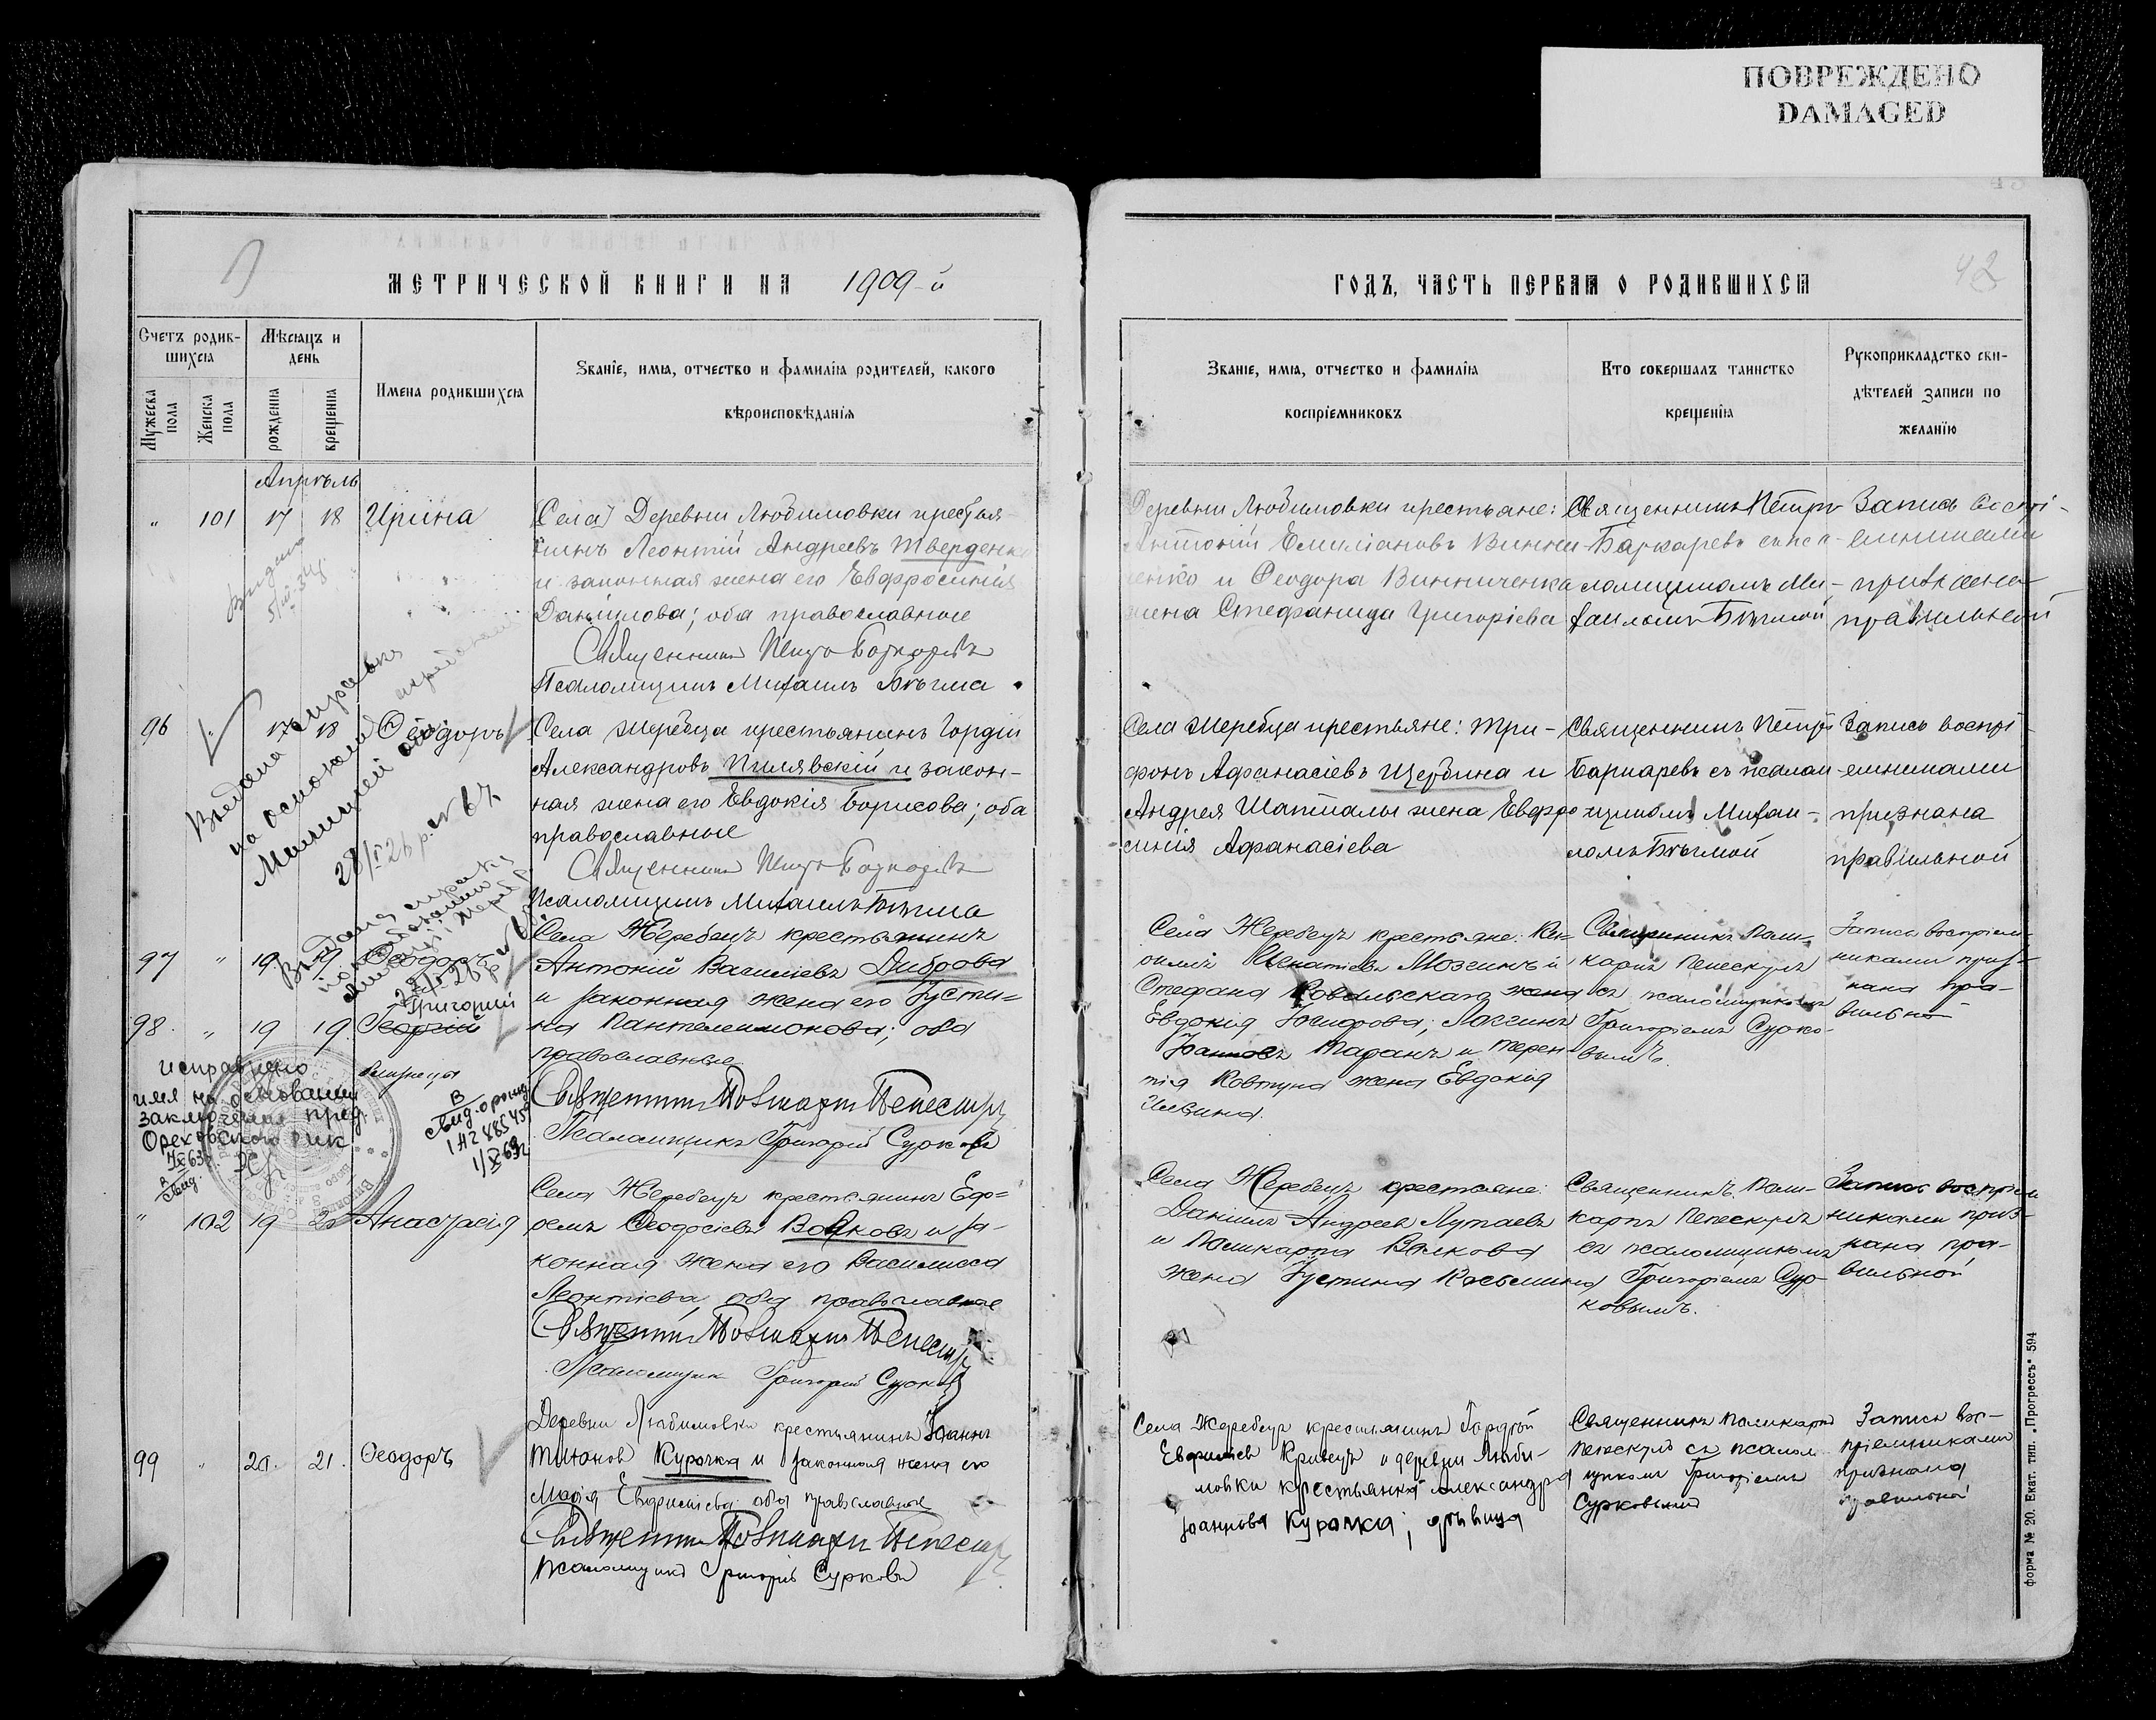 ПОВРЕЖДЕНО
DAMAGED
МЕТРИЧЕСКОЙ КНИГИ НА 1909-й
ГОДЪ, ЧАСТЬ ПЕРВАЯ О РОДИВШИХСЯ
42
Счетъ родив-
шихся
Мужеска пола
Женска пола
Мѣсяцъ и
день
рожденія
крещенія
Имена родившихся
Званіе, имя, отчество и фамилія родителей, какого
вѣроисповѣданія
Званіе, имя, отчество и фамилія
воспріемниковъ
Кто совершалъ таинство
крещенія
Рукоприкладство сви-
дѣтелей записи по
желанію
Апрѣль
" 101 17 18 Ирина
(Села) Деревни Любимовки крестья-
нинъ Леонтій Андреевъ Тверденко
и законная жена его Евфросинія
Даніилова; оба православные
Священникъ Петръ Баркаревъ
Псаломщикъ Михаилъ Бѣгма
Деревни Любимовки крестьяне:
Антоній Емиліановъ Винни-
ченко и Феодора Винниченка
жена Стефанида Григоріева
Священникъ Петръ
Баркаревъ съ пса-
ломщикомъ Ми-
хаиломъ Бѣгмой
Запись воспрі-
емниками
признана
правильной
96 " 17 18 Ѳеодоръ
Села Жеребца крестьянинъ Гордій
Александровъ Пилявскій и закон-
ная жена его Евдокія Борисова; оба
православные
Священникъ Петръ Баркаревъ
Псаломщикъ Михаилъ Бѣгма
Села Жеребца крестьяне: Три-
фонъ Афанасіевъ Щербина и
Андрея Шапталы жена Евфро-
синія Афанасіева
Священникъ Петръ
Баркаревъ съ псалом-
щикомъ Михаи-
ломъ Бѣгмой
Запись воспрі-
емниками
признана
правильной
Выдана справка
на основании
28/I 26 р. № 67
97 " 19 19 Ѳеодоръ
Григорий
98 " 19 19 Георгій
близнецы
Села Жеребецъ крестьянинъ
Антоній Василіевъ Диброва
и законная жена его Іусти-
на Пантелеимонова; оба
православные
Священникъ Поликарпъ Пепескулъ
Псаломщикъ Григорій Сурковъ
Села Жеребецъ крестьяне:
Игнатіевъ Мозгинъ и
Стефана Ковальскаго жена
Евдокія
Іоанновъ Таранъ и Терен-
тія Ковтуна жена Евдокія
Священникъ Поли-
карпъ Пепескулъ
съ псаломщикомъ
Григоріемъ Сурко-
вымъ.
Запись воспріем-
никами приз-
нана пра-
вильной
исправлено
имя на основании
заключения пред.
Ореховского рик
" 102 19 20 Анастасія
Села Жеребецъ крестьянинъ Еф-
ремъ Ѳеодосіевъ Волковъ и за-
конная жена его Василисса
Леонтіева, оба православные
Священникъ Поликарпъ Пепескулъ
Псаломщикъ Григорій Сурковъ
Села Жеребецъ крестьяне:
Даніилъ Андреевъ Лутаевъ
и Поликарпа Волкова
жена Іустина Косьмина
Священникъ Поли-
карпъ Пепескулъ
съ псаломщикомъ
Григоріемъ Сур-
ковымъ.
Запись воспріем-
никами приз-
нана пра-
вильной
99 " 20. 21. Ѳеодоръ
Деревни Любимовки крестьянинъ Іоаннъ
Курочка и законная жена его
Марія оба православные
Священникъ Поликарпъ Пепескулъ
Псаломщикъ Григорій Сурковъ
Села Жеребецъ крестьянинъ Гордій
Кривецъ и деревни Люби-
мовки крестьянка Александра
Іоаннова Курочка; дѣвица
Священникъ Поликарпъ
Пепескулъ съ псалом-
щикомъ Григоріемъ
Сурковымъ
Запись вос-
пріемниками
признана
правильной
форма № 20. Екат. тип. „Прогрессъ" 594